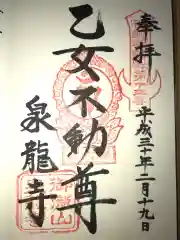 奉拝
平成三十年二月十九日
乙女不動尊
泉龍寺